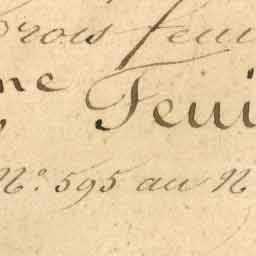 Trois feui
me Feui
N.º 595 au N